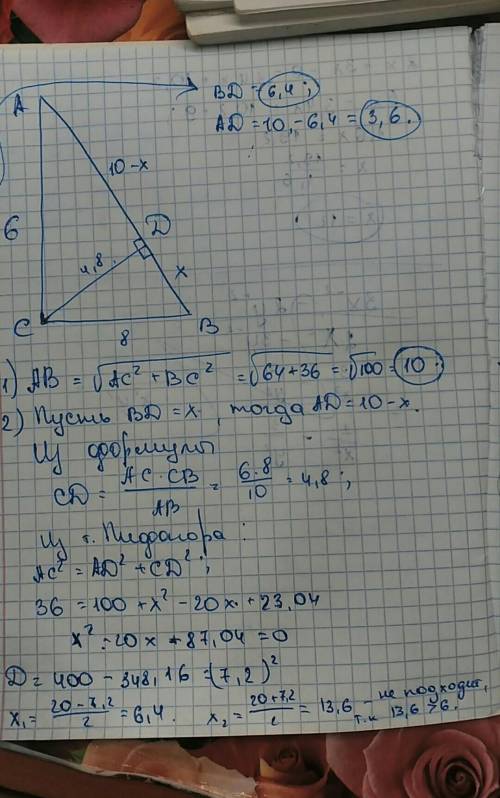 BD = 6,4;
AD = 10,-6,4 = 3,6.
A
10-x
6
D
4,8.
x
C
8
B
1) AB = √AC² + BC² = √64+36 = √100 = 10;
2) Пусть BD = x, тогда AD = 10 - x.
Из формулы
CD = AC · CB / AB = 6·8 / 10 = 4,8;
Из т. Пифагора:
AC² = AD² + CD²;
36 = 100 + x² - 20x + 23,04
x² - 20x + 87,04 = 0
D = 400 - 348,16 = (7,2)²
x₁ = 20 - 7,2 / 2 = 6,4. x₂ = 20+7,2 / 2 = 13,6 - не подходит,
т.к 13,6 > 6.